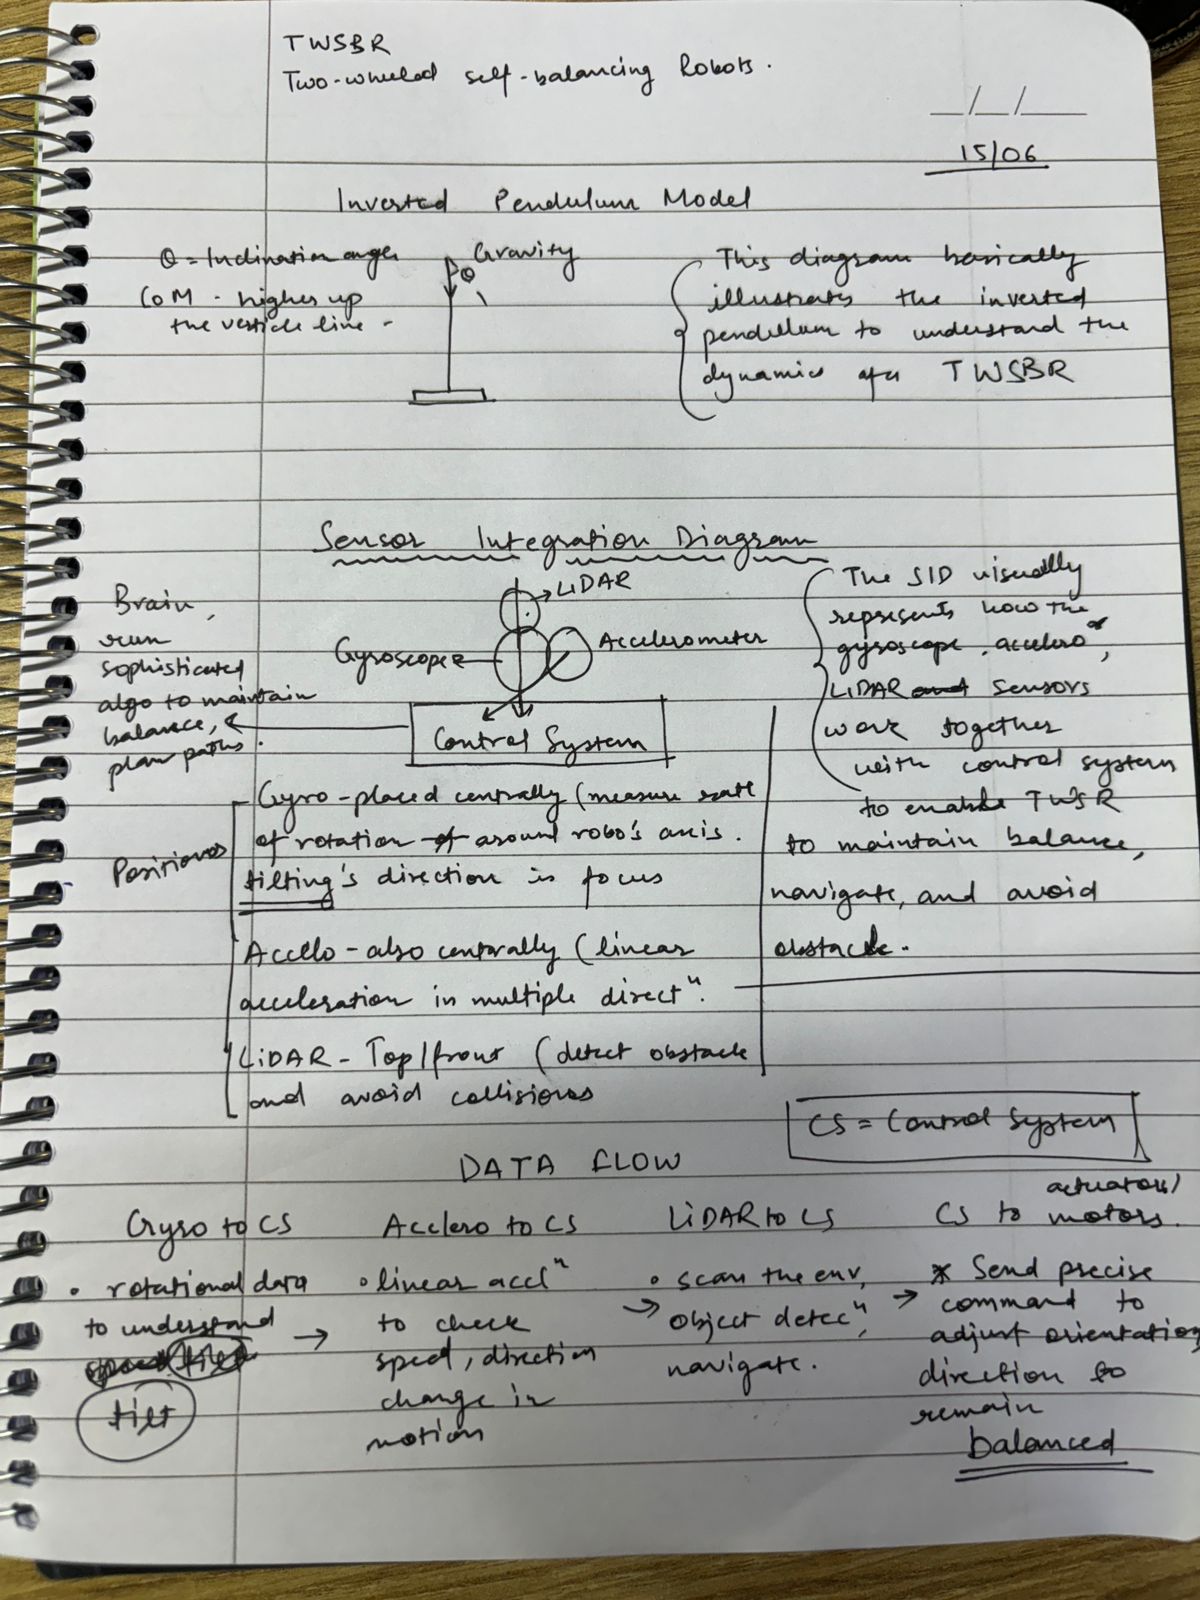 TWSBR
Two-wheeled self-balancing Robots.
__/__/____
15/06
Inverted Pendulum Model
θ = Inclination angle
COM - higher up
the verticle line -
Gravity
θ
This diagram basically
illustrates the inverted
pendulum to understand the
dynamics of a TWSBR
Sensor Integration Diagram
LiDAR
Gyroscope
Accelerometer
Control System
Brain,
run
sophisticated
algo to maintain
balance,
plan paths.
The SID visually
represents how the
gyroscope, accelero,
LiDAR and sensors
work together
with control system
to enable TWSR
to maintain balance,
navigate, and avoid
obstacle.
Positions
Gyro - placed centrally (measure rate
of rotation of around robo's axis.
tilting's direction is focus
Accelo - also centrally (linear
acceleration in multiple directⁿ.
LiDAR - Top/front (detect obstacle
and avoid collisions
CS = Control System
DATA FLOW
Gyro to CS
• rotational data
to understand
tilt
→
Acclero to CS
• linear acclⁿ
to check
speed, direction
change in
motion
→
LiDAR to CS
• scan the env,
object detecⁿ,
navigate.
→
CS to actuators/
motors.
* Send precise
command to
adjust orientation,
direction to
remain
balanced